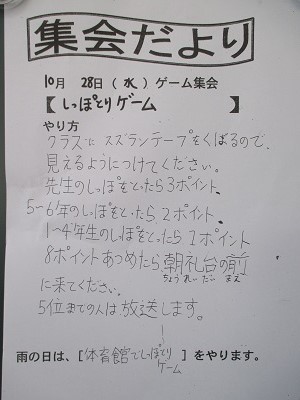 集会だより
10月 28日（水）ゲーム集会
【しっぽとりゲーム】
やり方
クラスにスズランテープをくばるので、
見えるようにつけてください。
先生のしっぽをとったら3ポイント、
5〜6年のしっぽをとったら2ポイント、
1〜4年生のしっぽをとったら1ポイント
8ポイントあつめたら朝礼台の前
ちょうれいだい まえ
に来てください。
5位までの人は放送します。
雨の日は、[体育館でしっぽとりゲーム]をやります。